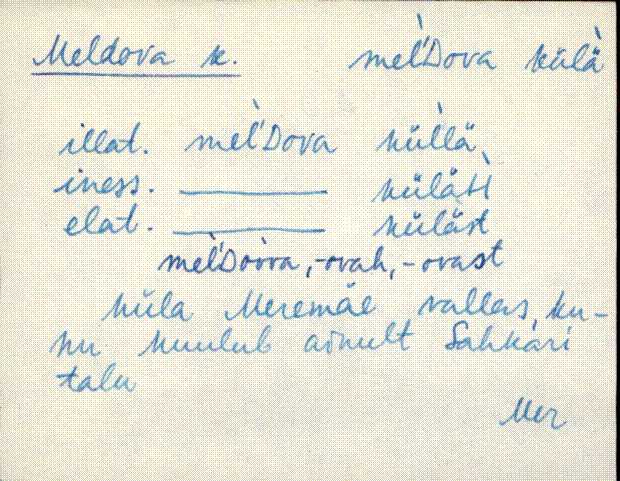 Meldova k. mel'Dova külä
illat. mel'Dova küllä,
iness. ——— küläh
elat. ——— küläst
mel'Dovva, -ovah, -ovast
küla Meremäe vallas, ku-
hu kuulub ainult Sahkari
talu
Mer